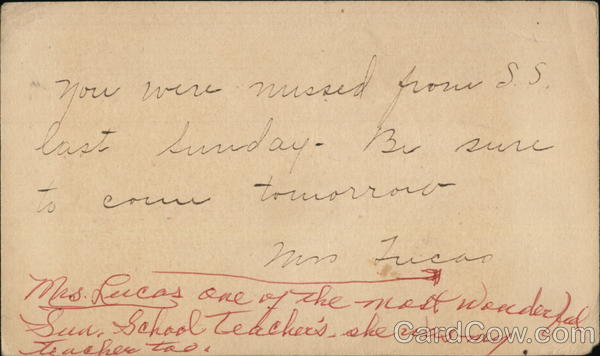 You were missed from S.S.
last Sunday - Be sure
to come tomorrow
Mrs Lucas
Mrs. Lucas one of the most wonderful
Sun. School Teacher's - she was my
teacher too.
CardCow.com